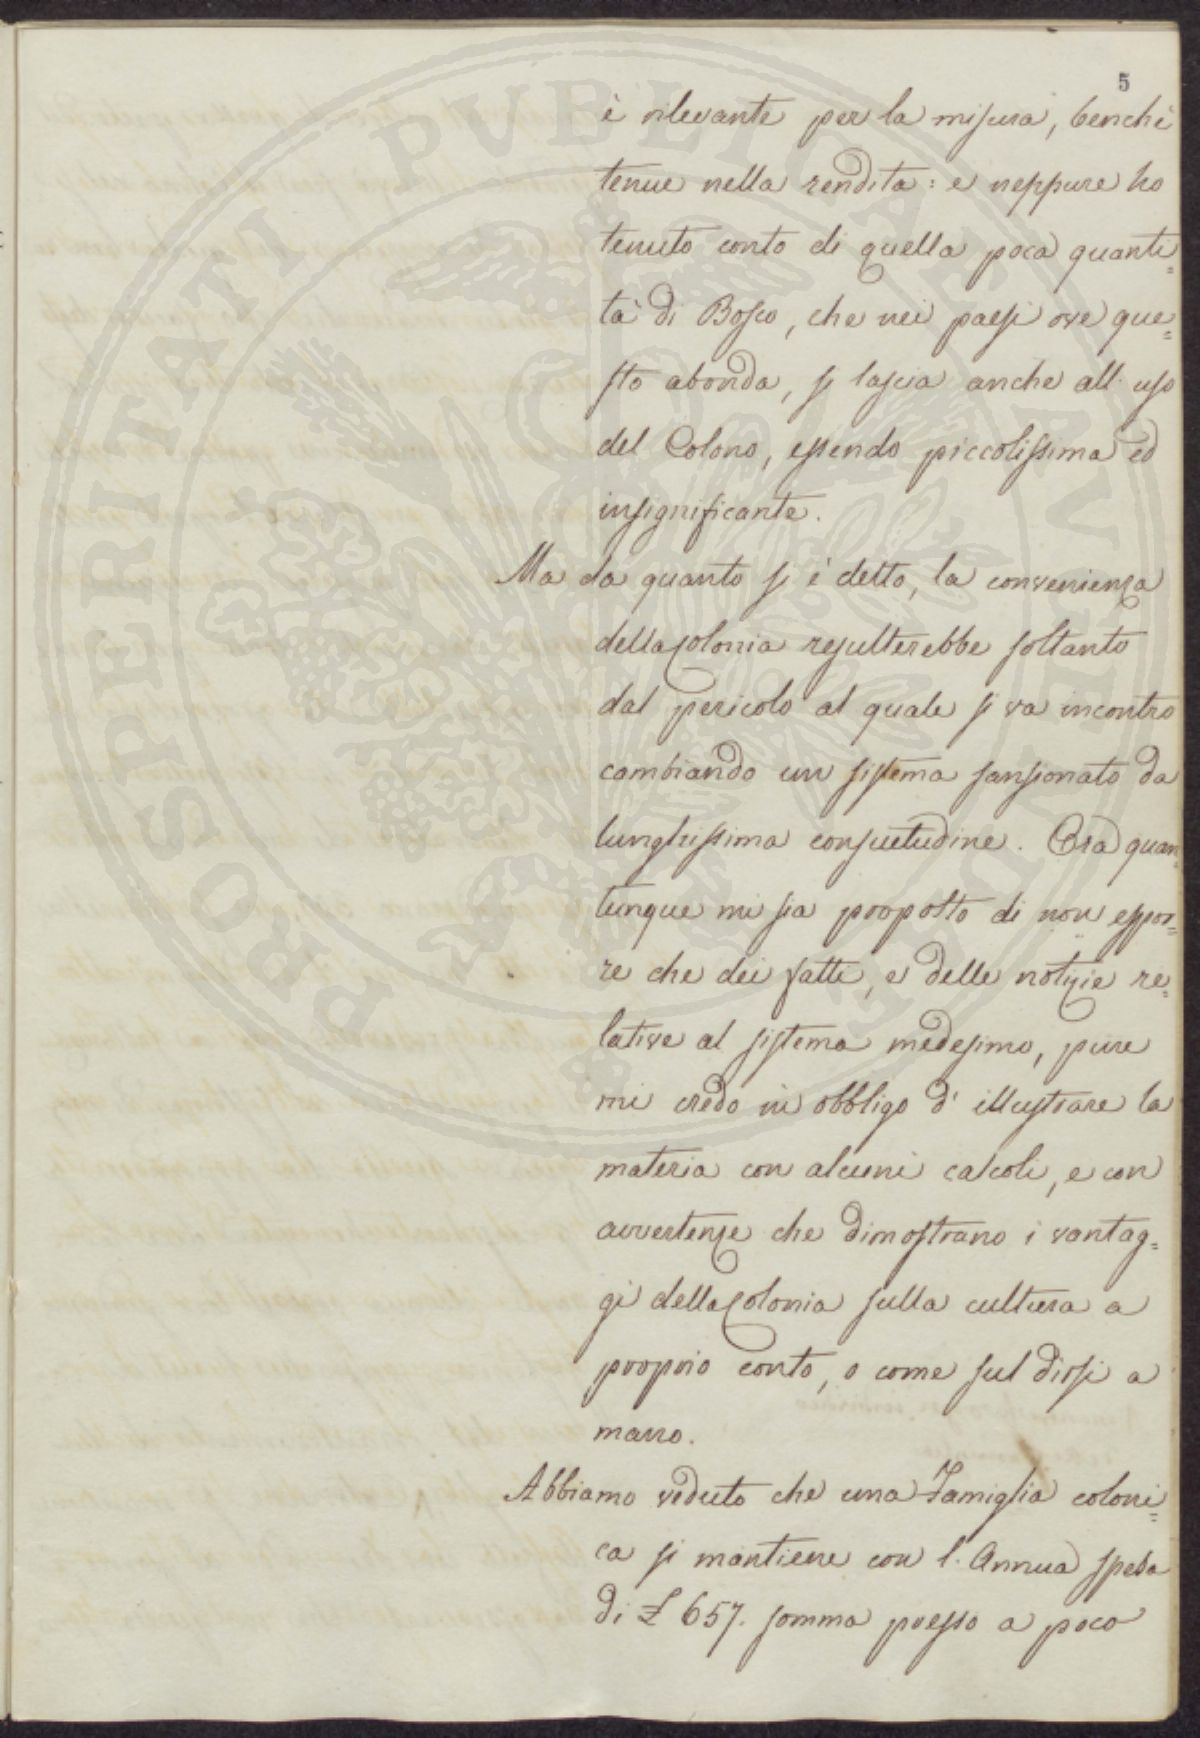 5
è rilevante per la misura, benchè
tenue nella rendita: e neppure ho
tenuto conto di quella poca quanti=
tà di Bosco, che nei paesi ove que=
sto abonda, si lascia anche all' uso
del Colono, essendo piccolissima ed
insignificante.
Ma da quanto si è detto, la convenienza
della Colonia resulterebbe soltanto
dal pericolo al quale si va incontro
cambiando un sistema sansionato da
lunghissima consuetudine. Ora quan=
tunque mi sia proposto di non espor=
re che dei fatti, e delle notizie re=
lative al sistema medesimo, pure
mi credo in obbligo d' illustrare la
materia con alcuni calcoli, e con
avvertenze che dimostrano i vantag=
gi della Colonia sulla cultura a
proprio conto, o come suol dirsi a
mano.
Abbiamo veduto che una Famiglia coloni=
ca si mantiene con l' Annua spesa
di £ 657. somma presso a poco
PROSPERITATI PVBLICAE AVGENDAE